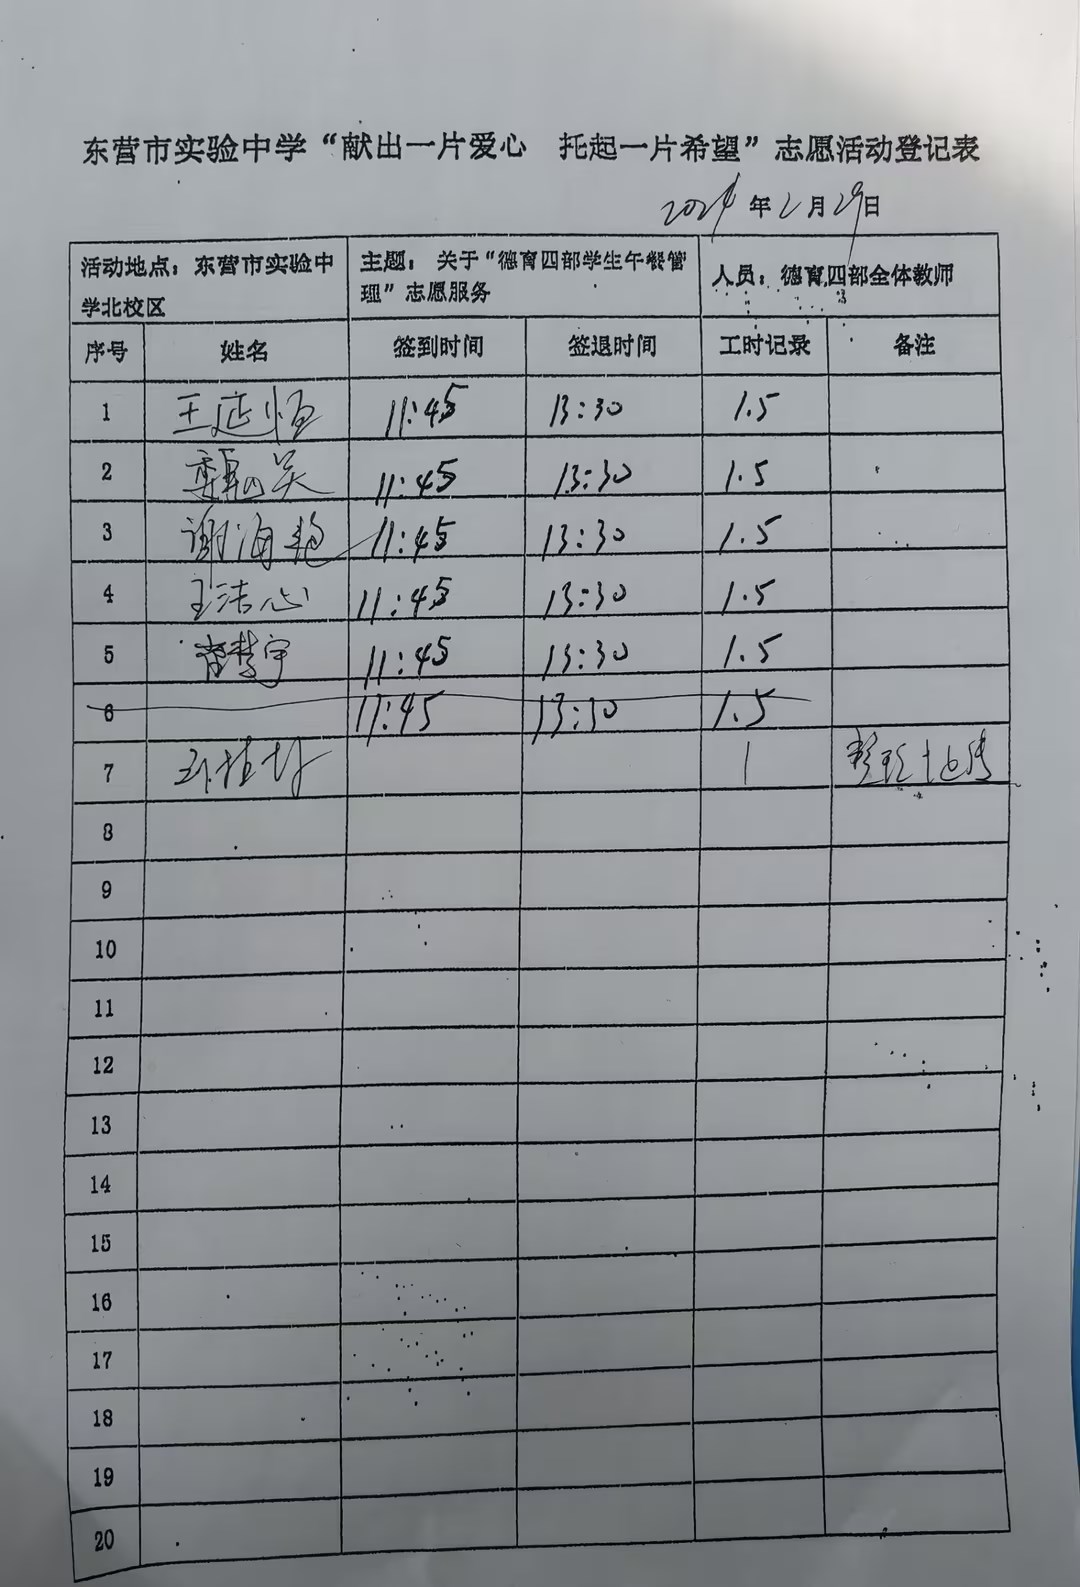 东营市实验中学“献出一片爱心 托起一片希望”志愿活动登记表
2024年2月29日
活动地点：东营市实验中学北校区 主题：关于“德育四部学生午餐管理”志愿服务 人员：德育四部全体教师
序号 姓名 签到时间 签退时间 工时记录 备注
1 王延恒 11:45 13:30 1.5
2 11:45 13:30 1.5
3 谢海艳 11:45 13:30 1.5
4 王洁心 11:45 13:30 1.5
5 曹慧宇 11:45 13:30 1.5
6 11:45 13:30 1.5
7 1
8
9
10
11
12
13
14
15
16
17
18
19
20